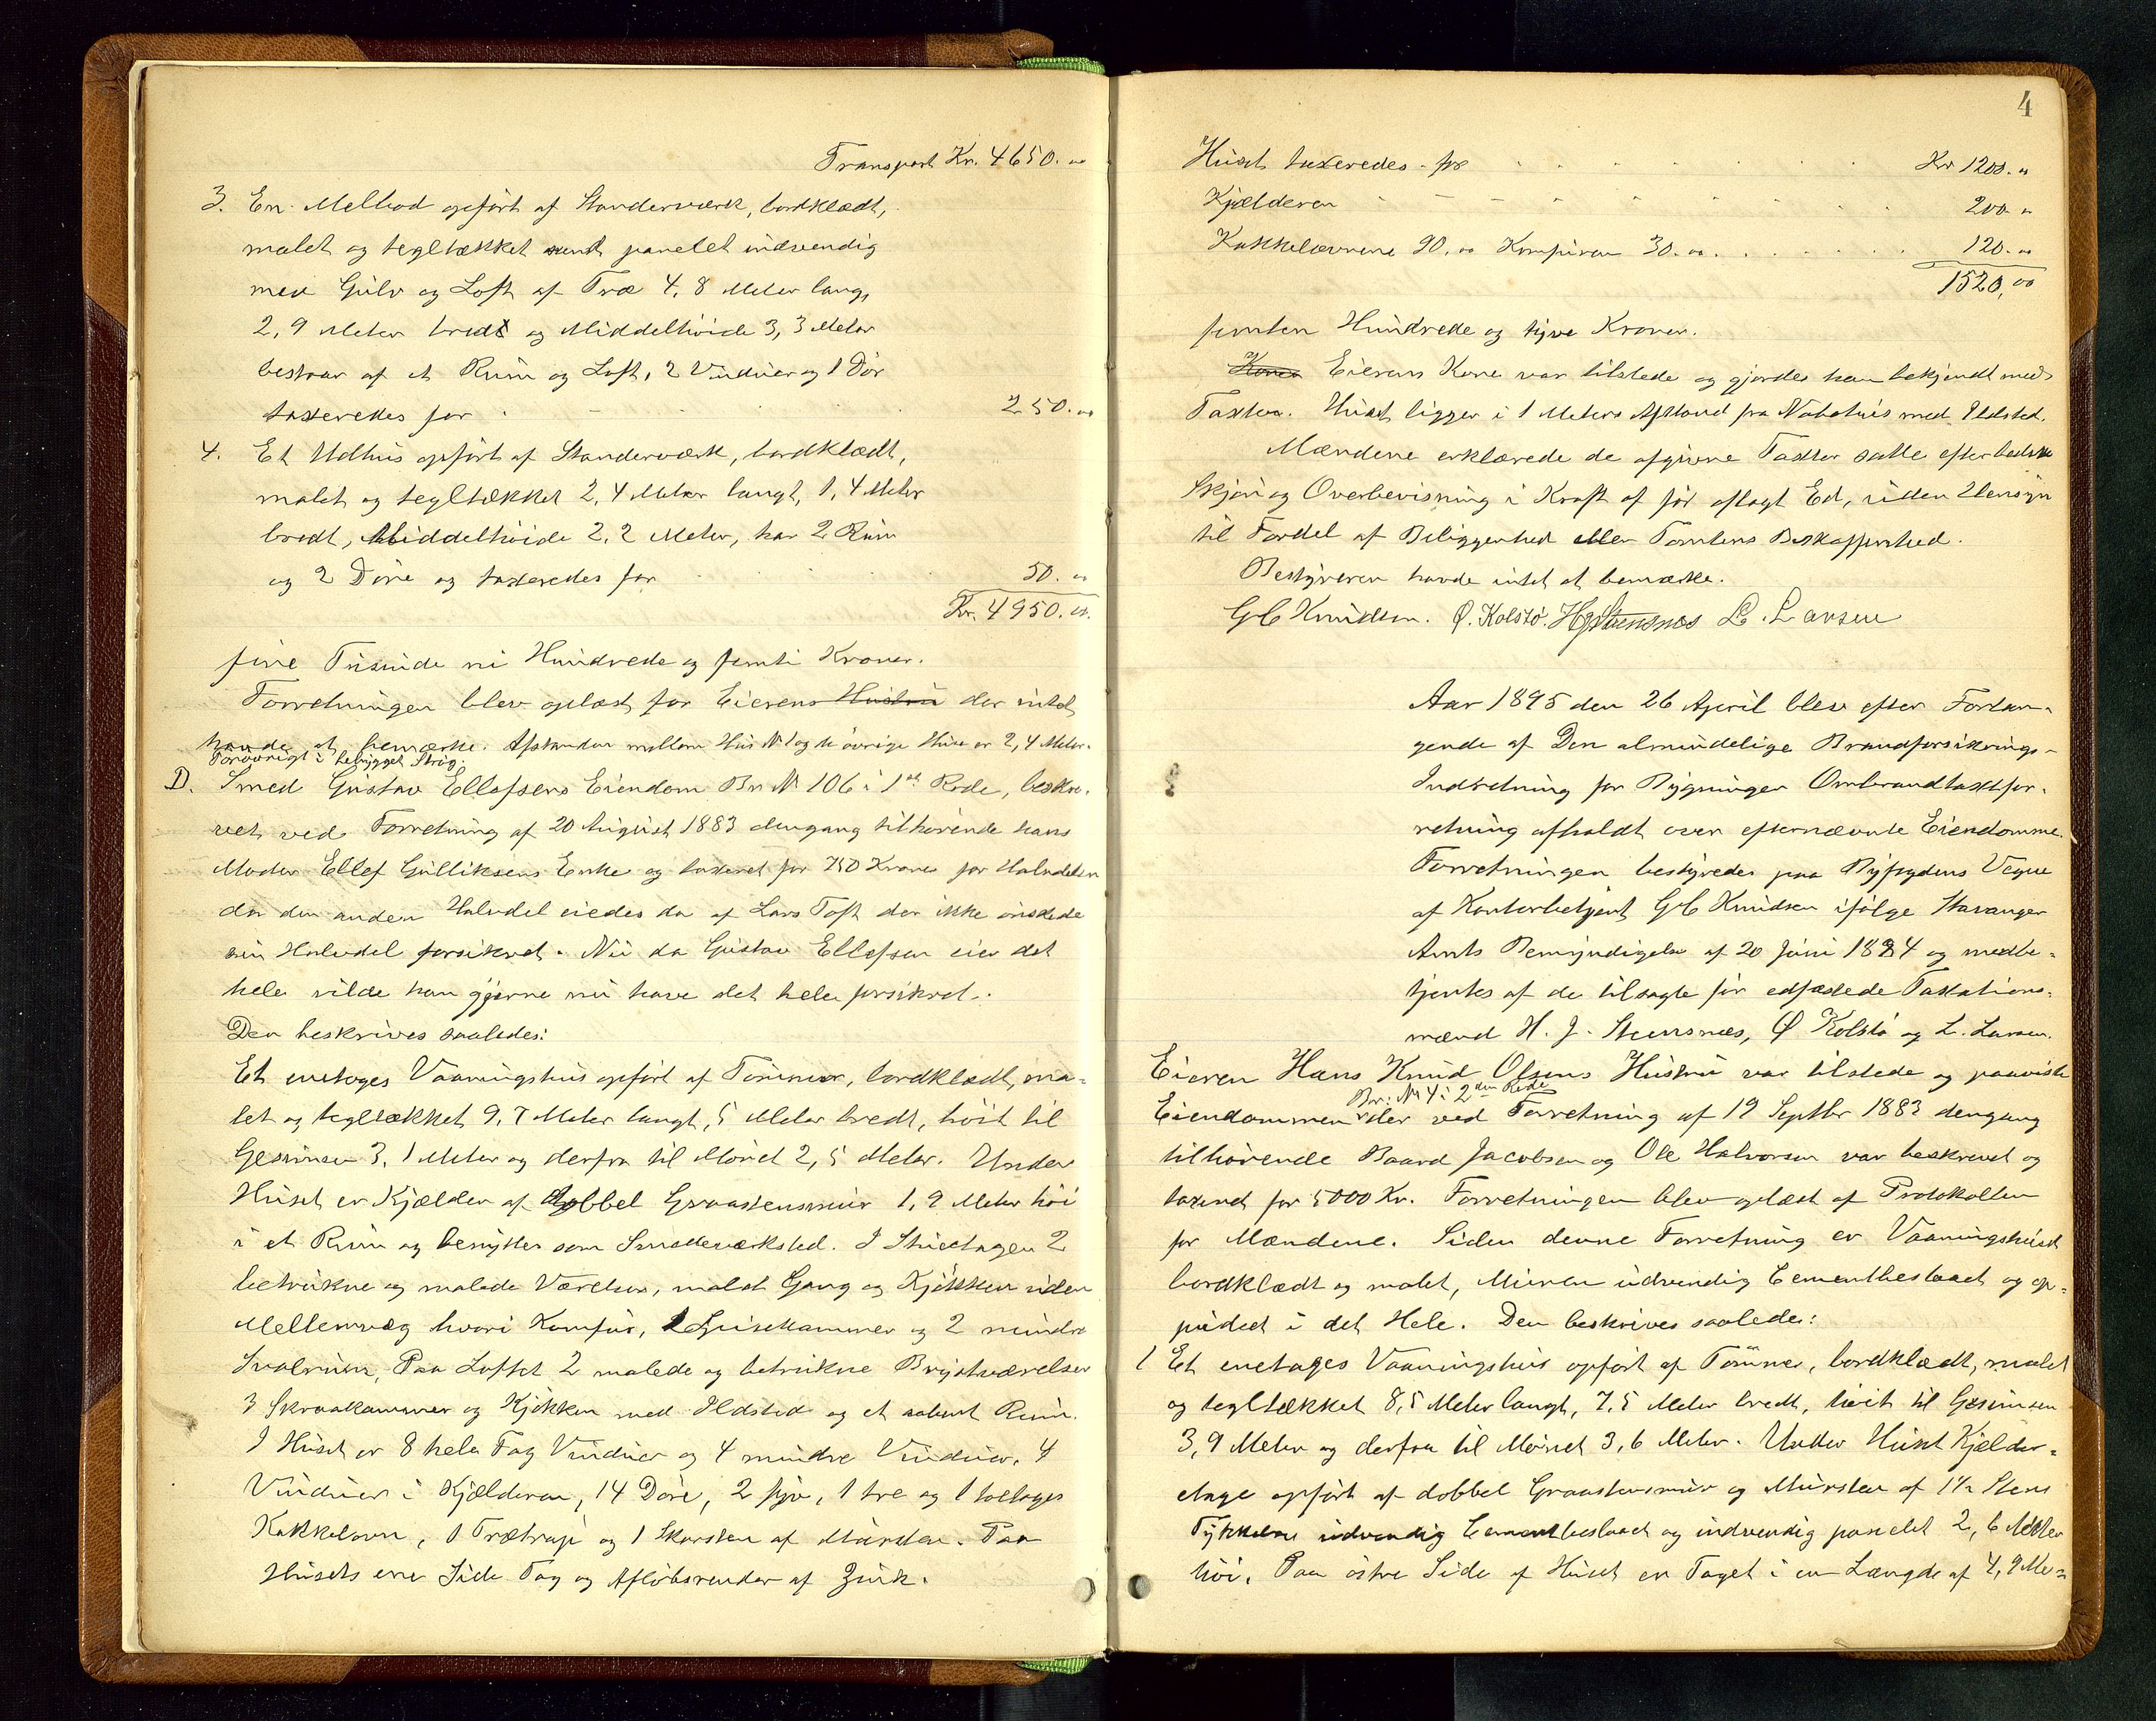 Transport Kr. 4650.„
3. En Melbod opført af Standerværk, bordklædt,
malet og tegltækket samt panelet indvendig
med Gulv og Loft af Træ 4,8 Meter lang,
2,9 Meter bredt og Middelhøide 3,3 Meter
bestaar af et Rum og Loft, 2 Vinduer og 1 Dør
taxeredes for 250.„
4. Et Udhus opført af Standerværk, bordklædt,
malet og tegltækket 2,4 Meter langt, 1,4 Meter
bredt, Middelhøide 2,2 Meter, har 2 Rum
og 2 Døre og taxeredes for 50.„
Kr. 4950.„
fire Tusinde ni Hundrede og femti Kroner.
Forretningen blev oplæst for Eierens Hustru der intet
havde at bemærke. Afstanden mellem Hus N 1 og de øvrige Huse er 2,4 Meter.
Forøvrigt i bebygget Strøg.
D. Smed Gustav Ellefsens Eiendom Br N 106 i 1ste Rode, beskre-
vet ved Forretning af 20 August 1883 dengang tilhørende hans
Moder Ellef Gulliksens Enke og taxeret for 750 Kroner for Halvdelen
da den anden Halvdel eiedes da af Lars Toft der ikke ønskede
sin Halvdel forsikret. Nu da Gustav Ellefsen eier det
hele vilde han gjerne nu have det hele forsikret.
Den beskrives saaledes:
Et enetages Vaaningshus opført af Tømmer, bordklædt, ma-
let og tegltækket 9,7 Meter langt, 5 Meter bredt, høit til
Gesimsen 3,1 Meter og derfra til Mønet 2,5 Meter. Under
Huset er Kjælder af dobbel Graastensmur 1,9 Meter høi
i et Rum og benyttes som Smedeværksted. I Stueetagen 2
betrukne og malede Værelser, malet Gang og Kjøkken uden
Mellemvæg hvori Komfur, 1 Spisekammer og 2 mindre
Svalrum, Paa Loftet 2 malede og betrukne Brystværelser
3 Skraakammer og Kjøkken med Ildsted og et aabent Rum.
I Huset er 8 hele Fag Vinduer og 4 mindre Vinduer, 4
Vinduer i Kjælderen, 14 Døre, 2 Gjø, 1 tre og 1 toetages
Kakkelovn, 1 Trætrap og 1 Skorsten af Mursten. Paa
Husets ene Side Tag og Afløbsrender af Zink.
4
Huset taxeredes for Kr 1200.„
Kjælderen 200.„
Kakkelovnene 90.„ Komfuren 30.„ 120.„
1520,00
femten Hundrede og tyve Kroner.
Konen Eierens Kone var tilstede og gjordes hun bekjendt med
Taxten. Huset ligger i 1 Meters Afstand fra Nabohus med Ildsted.
Mændene erklærede de afgivne Taxter satte efter bedste
Skjøn og Overbevisning i Kraft af før aflagt Ed, uden Hensyn
til Fordel af Beliggenhed eller Tomtens Beskaffenhed.
Bestyreren havde intet at bemærke.
G C Knudsen. Ø. Kolstø. H J Stensnæs L. Larsen
Aar 1895 den 26 April blev efter Forlan-
gende af Den almindelige Brandforsikrings-
Indretning for Bygninger Ombrandtaxtfor-
retning afholdt over efternævnte Eiendomme.
Forretningen bestyredes paa Byfogdens Vegne
af Kontorbetjent G C Knudsen ifølge Stavanger
Amts Bemyndigelse af 20 Juni 1884 og medbe-
tjentes af de tilsagte før edfæstede Taxations-
mænd H. J. Stensnæs, Ø Kolstø og L. Larsen.
Eieren Hans Knud Olsens Hustru var tilstede og paaviste
Br: N 4 i 2den Rode
Eiendommen der ved Forretning af 19 Septbr 1883 dengang
tilhørende Baard Jacobsen og Ole Halvorsen var beskrevet og
taxeret for 5000 Kr. Forretningen blev oplæst af Protokollen
for Mændene. Siden denne Forretning er Vaaningshuset
bordklædt og malet, Muren udvendig Cementbeslaaet og op-
pudset i det Hele. Den beskrives saaledes:
1 Et enetages Vaaningshus opført af Tømmer, bordklædt, malet
og tegltækket 8,5 Meter langt, 7,5 Meter bredt, høit til Gesimsen
3,9 Meter og derfra til Mønet 3,6 Meter. Under Huset Kjælder-
etage opført af dobbel Graastensmur og Mursten af 1½ Stens
Tykkelse udvendig Cementbeslaaet og indvendig panelet 2,6 Meter
høi. Paa østre Side af Huset er Taget i en Længde af 4,9 Me-